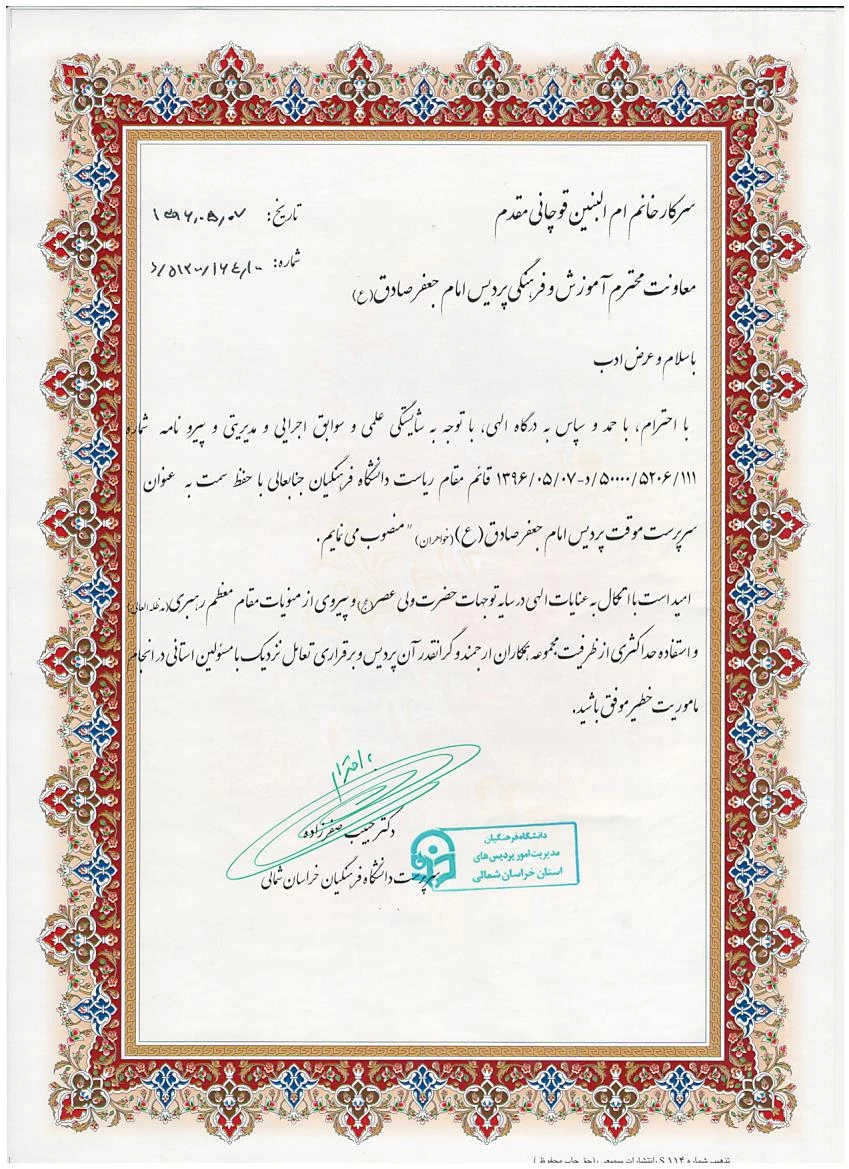 سرکار خانم ام البنین قوچانی مقدم
تاریخ: ۱۳۹۶,۰۵,۰۷
معاونت محترم آموزش و فرهنگی پردیس امام جعفر صادق (ع)
شماره:
با سلام و عرض ادب
با احترام، با حمد و سپاس به درگاه الهی، با توجه به شایستگی علمی و سوابق اجرایی و مدیریتی و پیرو نامه شماره
۵۰۰۰۰/۵۲۰۶/۱۱۱/د-۱۳۹۶/۰۵/۰۷ قائم مقام ریاست دانشگاه فرهنگیان جنابعالی با حفظ سمت به عنوان "
سرپرست موقت پردیس امام جعفر صادق (ع) (خواهران) " منصوب می نمایم.
امید است با اتکال به عنایات الهی در سایه توجهات حضرت ولی عصر (عج) و پیروی از منویات مقام معظم رهبری (مدظله العالی)
و استفاده حداکثری از ظرفیت مجموعه همکاران ارجمند و گرانقدر آن پردیس و برقراری تعامل نزدیک با مسئولین استانی در انجام
ماموریت خطیر موفق باشید.
با احترام
دکتر حبیب صفرزاده
سرپرست دانشگاه فرهنگیان خراسان شمالی
دانشگاه فرهنگیان
مدیریت امور پردیس های
استان خراسان شمالی
تذهیب شماره S ۱۱۴ انتشارات سمیعی (حق چاپ محفوظ)